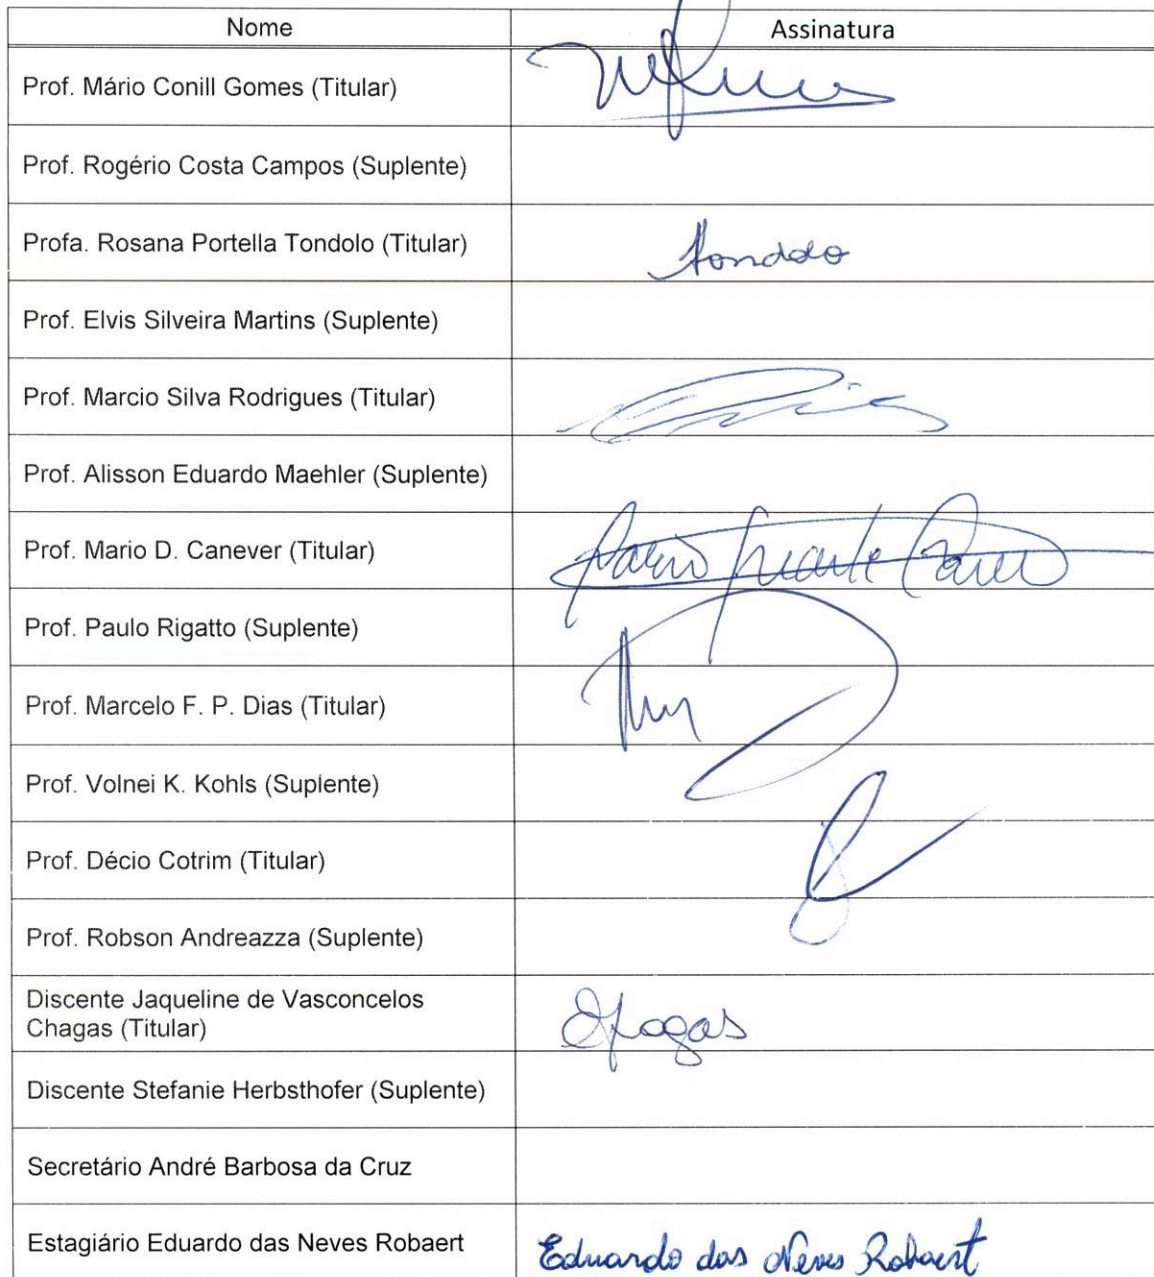 Nome Assinatura
Prof. Mário Conill Gomes (Titular)
Prof. Rogério Costa Campos (Suplente)
Profa. Rosana Portella Tondolo (Titular) Tondolo
Prof. Elvis Silveira Martins (Suplente)
Prof. Marcio Silva Rodrigues (Titular)
Prof. Alisson Eduardo Maehler (Suplente)
Prof. Mario D. Canever (Titular)
Prof. Paulo Rigatto (Suplente)
Prof. Marcelo F. P. Dias (Titular)
Prof. Volnei K. Kohls (Suplente)
Prof. Décio Cotrim (Titular)
Prof. Robson Andreazza (Suplente)
Discente Jaqueline de Vasconcelos
Chagas (Titular)
Discente Stefanie Herbsthofer (Suplente)
Secretário André Barbosa da Cruz
Estagiário Eduardo das Neves Robaert Eduardo das Neves Robaert